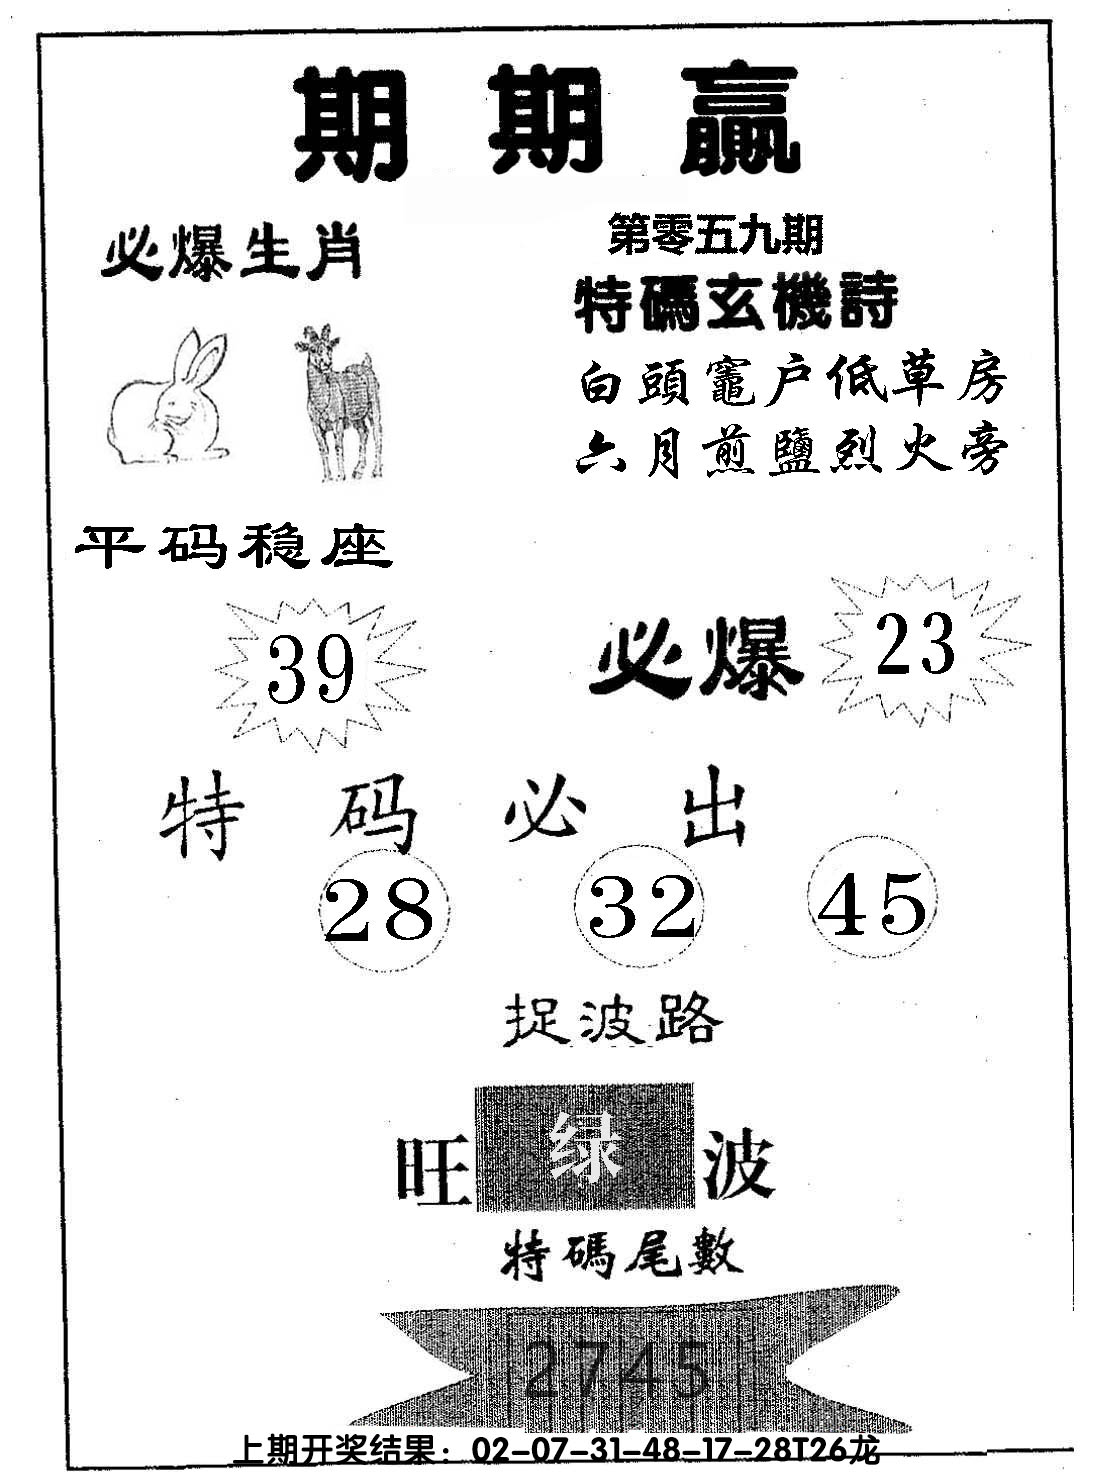 期期赢
必爆生肖
第零五九期
特碼玄機詩
白頭竈户低草房
六月煎鹽烈火旁
平码稳座
39
必爆 23
特码必出
28 32 45
捉波路
旺 绿 波
特碼尾數
2745
上期开奖结果：02-07-31-48-17-28T26龙